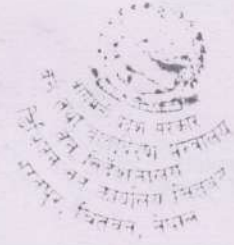 प्रदेश सरकार
वन तथा वातावरण मन्त्रालय
वन निर्देशनालय
डिभिजन वन कार्यालय चितवन
भरतपुर, चितवन, नेपाल